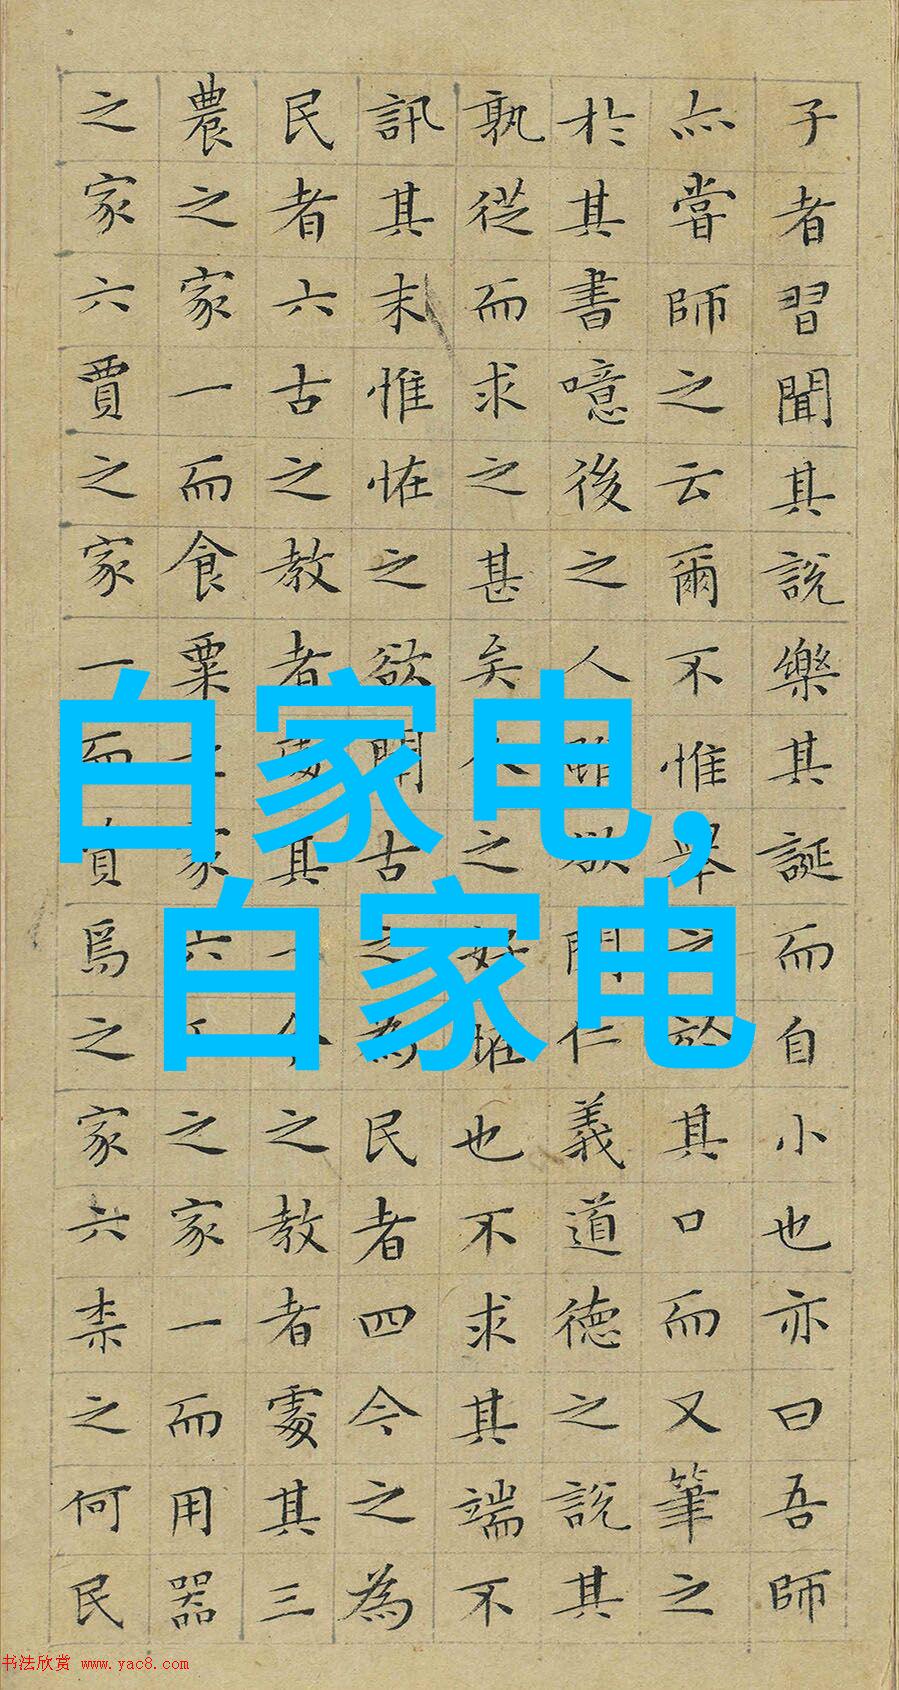 白家电,
白家电
子者習聞其說樂其誕而自小也亦曰吾師
亦嘗師之云爾不惟舉之於其口而又筆之
於其書噫後之人雖欲聞仁義道德之說其
孰從而求之甚矣人之好恠也不求其端不
訊其末惟恠之欲聞古之為民者四今之為
民者六古之教者處其一今之教者處其三
農之家一而食粟之家六工之家一而用器
之家六賈之家一而資焉之家六柰之何民
书法欣赏 www.yac8.com